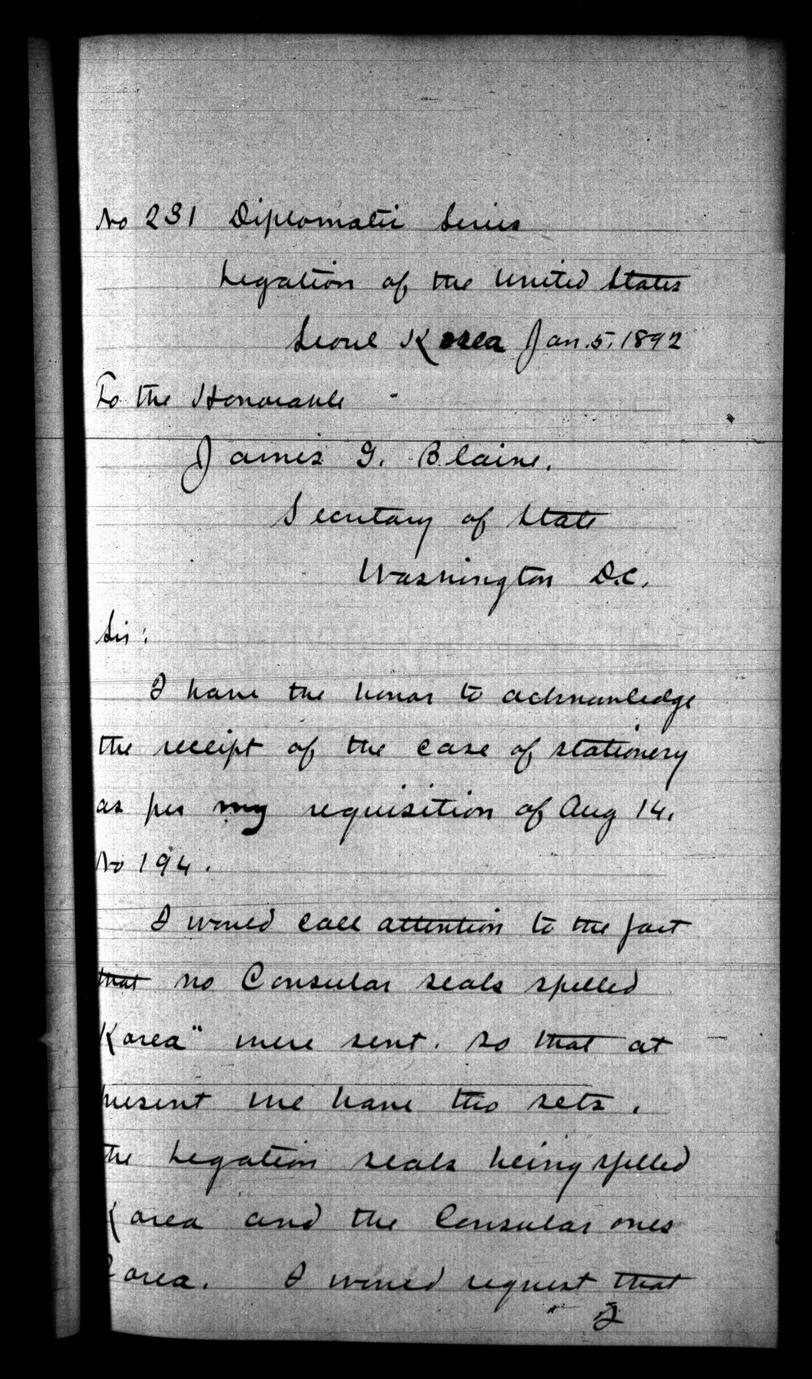 No 231 Diplomatic Series
Legation of the United States
Seoul Korea Jan. 5, 1892
To the Honorable
James G. Blaine,
Secretary of State
Washington D.C.
Sir:
I have the honor to acknowledge
the receipt of the case of stationery
as per my requisition of Aug 14,
No 194.
I would call attention to the fact
that no Consular seals spelled
Korea" were sent. so that at
present we have two sets,
the Legation seals being spelled
Korea and the Consular ones
Corea. I would request that